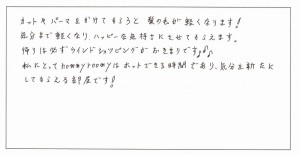 カットやパーマをかけてもらうと 髪の毛が軽くなります!
気分まで軽くなり、ハッピーな気持さにさせてもらえます。
帰りは必ずウインドショッピングがおきまりです♪♪
私にとってhommyroomyはホットできる時間であり、気分を新たに
してもらえる部屋です!